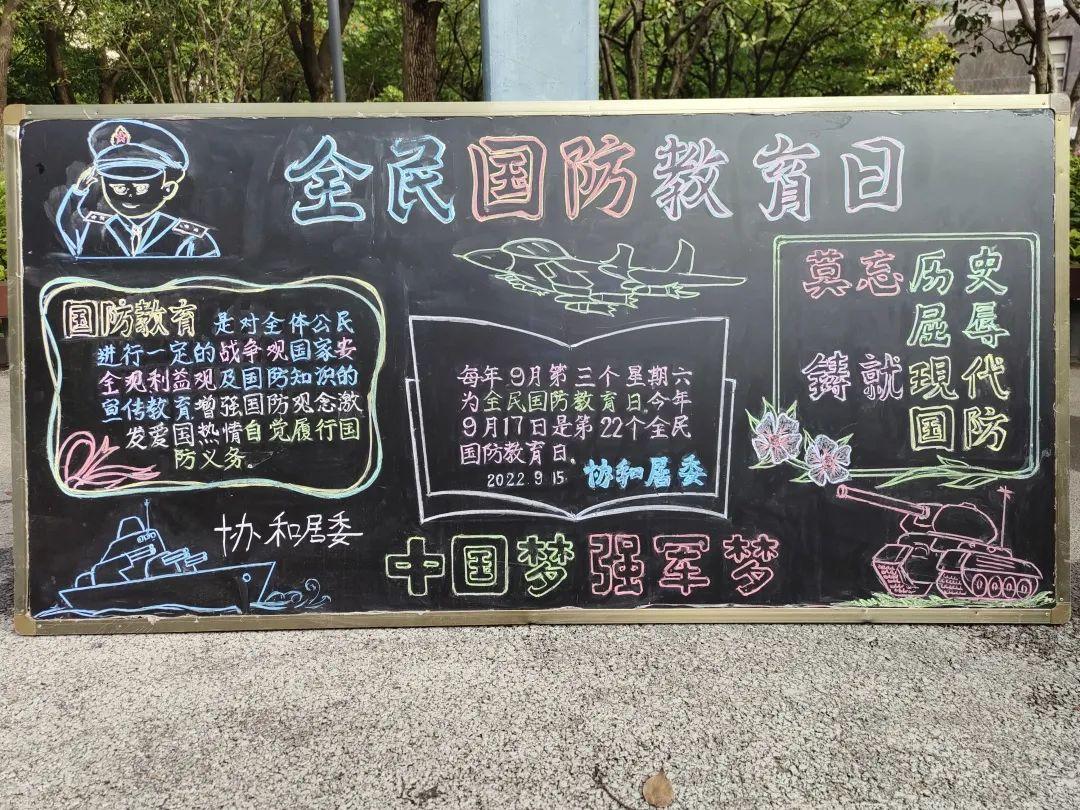 全民国防教育日
国防教育 是对全体公民
进行一定的战争观国家安
全观利益观及国防知识的
宣传教育.增强国防观念激
发爱国热情自觉履行国
防义务。
协和居委
每年9月第三个星期六
为全民国防教育日.今年
9月17日是第22个全民
国防教育日。
2022.9.15. 协和居委
莫忘历史
屈辱
鋳就現代
国防
中国梦强军梦